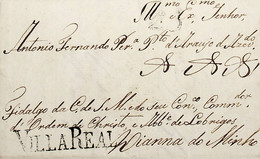 Illmo. e Exmo. Senhor.
Antonio Fernando Per.a Pto. d'Araujo d'Azevdo
Fidalgo da C. de S. M. e do Seu Cons.o Comm.or
d'Ordem de Christo, e Mb.e de Lobrigos
VILLA REAL Vianna do Minho